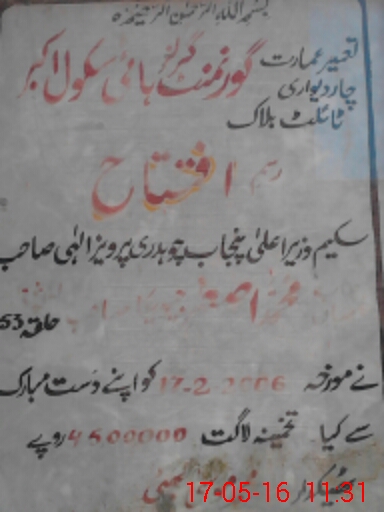 بسم اللہ الرحمٰن الرحیم
تعمیر عمارت
چار دیواری
ٹائلٹ بلاک
گورنمنٹ گرلز ہائی سکول اکبر
رسم افتتاح
سکیم وزیر اعلیٰ پنجاب چوہدری پرویز الٰہی صاحب
حلقہ 53
نے مورخہ 17-2-2006 کو اپنے دست مبارک
سے کیا۔ تخمینہ لاگت 4500000 روپے
ٹھیکیدار
17-05-16 11:31